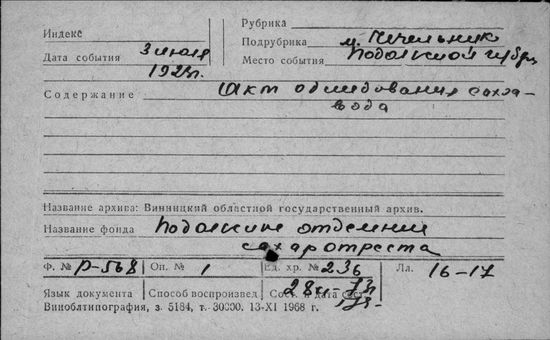 Индекс
Рубрика
Подрубрика м. Чечельник
Дата события 3 июля
Место события Подольской губерн
1923г.
Содержание Акт обследования сахза-
вода
Название архива: Винницкий областной государственный архив.
Название фонда Подольские отделения
сахаротреста
Ф. № Р-568 Оп. № 1 Ед. хр. № 236 Лл. 16-17
Язык документа Способ воспроизвед. Сост. и дата
Виноблтипография, з. 5184, т. 30000. 13-XI 1968 г.